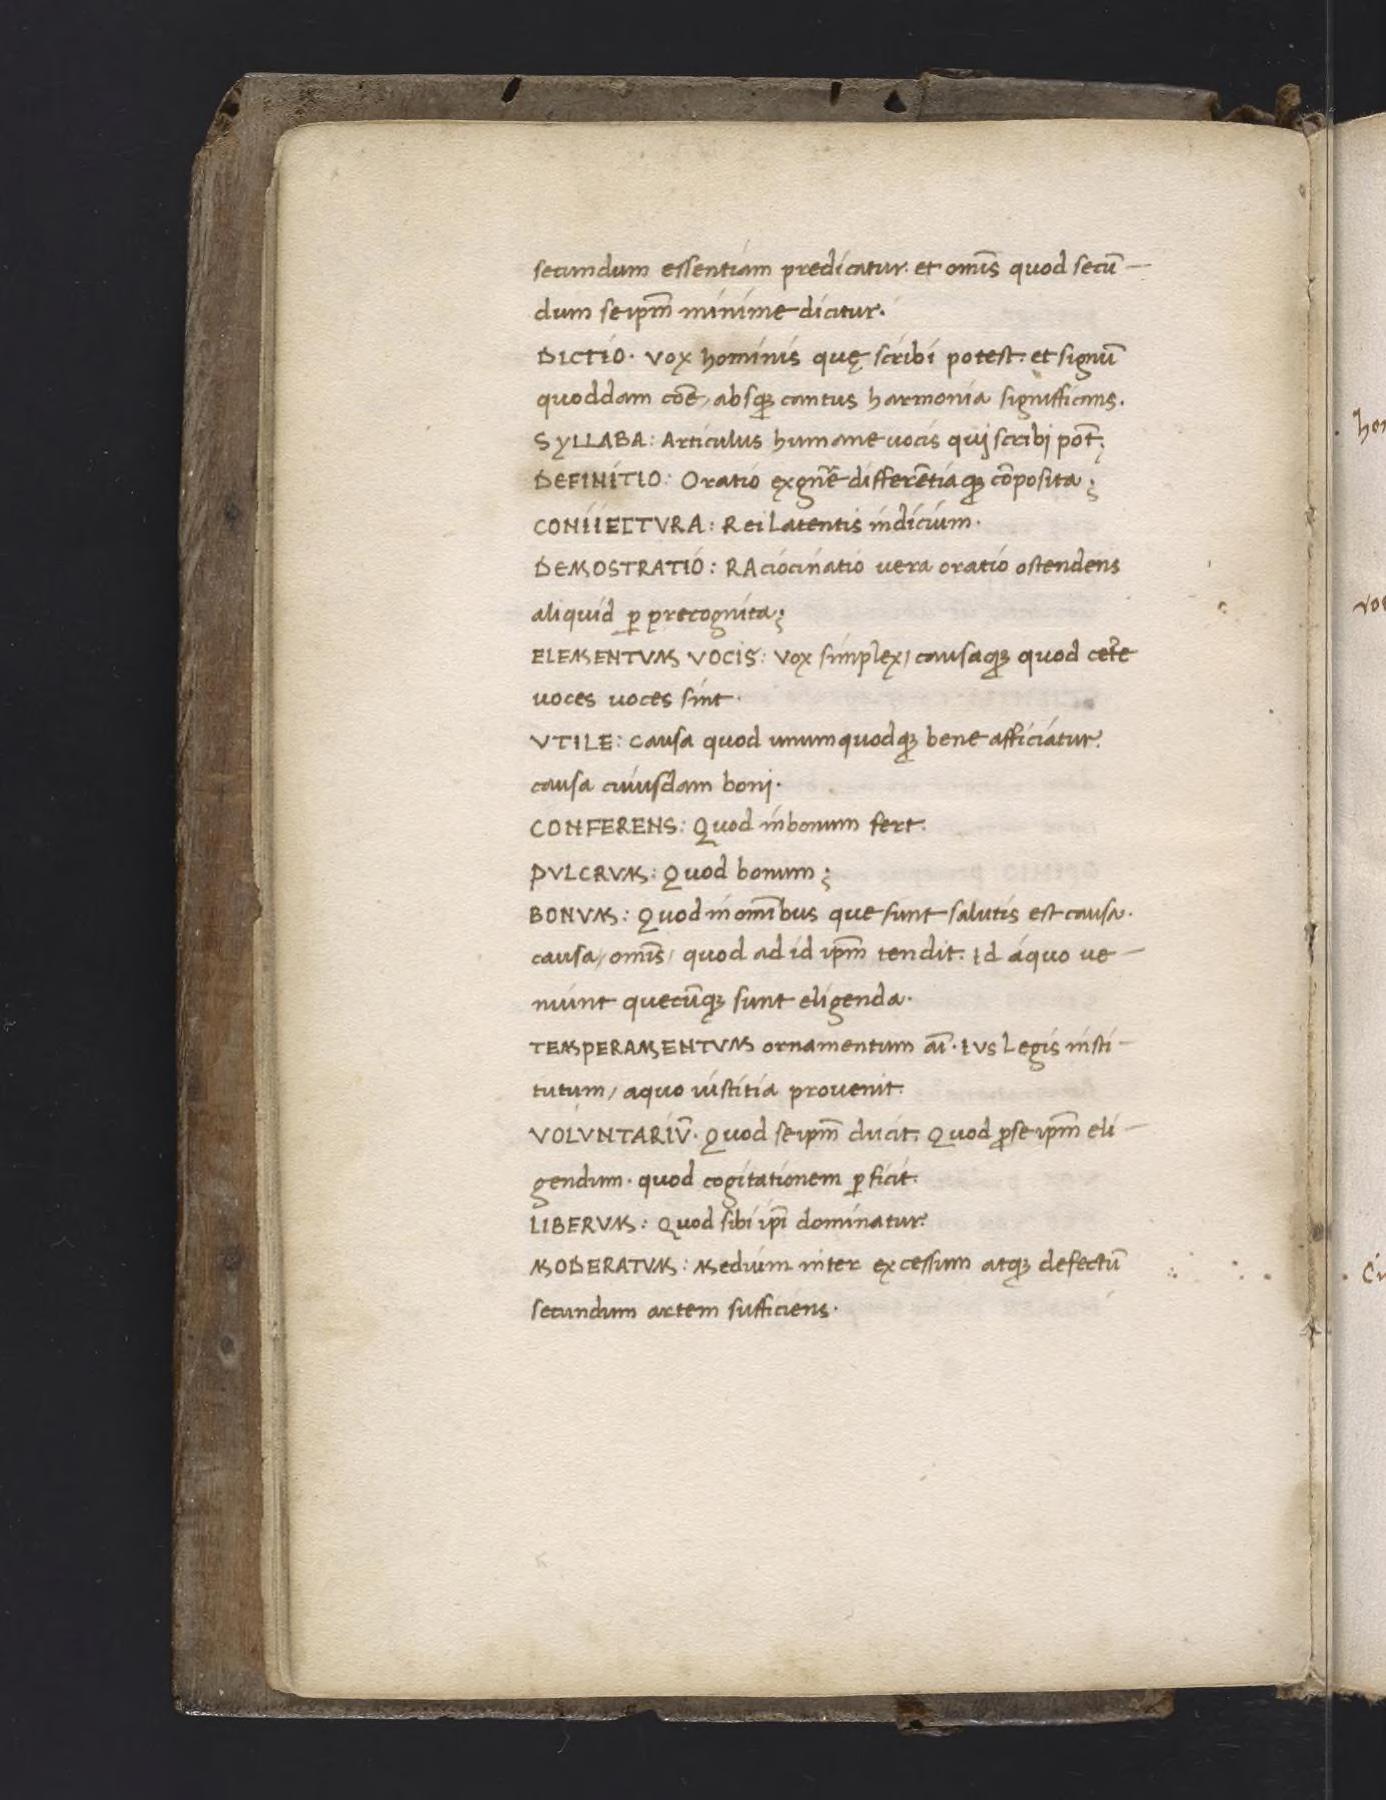 secundum essentiam predicatur. et omīs quod secū-
dum seipm̄ minime dicitur.
DICTIO. Vox hominis quę scribi potest. et signū
quoddam cōe, absqꝫ cantus harmonia significans.
SYLLABA: Articulus humane uocis quj scribj pot̄;
DEFINITIO: Oratio ex gn̄e differētiaqꝫ cōposita;
CONIIECTVRA: Rei Latentis indicium.
DEMOSTRATIO: RAciocinatio vera oratio ostendens
aliquid ꝑ precognita;
ELEMENTVM VOCIS: Vox simplex, causaqꝫ quod cet̄e
uoces uoces sint.
VTILE: Causa quod unumquodqꝫ bene afficiatur.
causa cuiusdam bonj.
CONFERENS: Quod in bonum fert.
PVLCRVM: Quod bonum;
BONVM: Quod in omībus que sunt salutis est causa.
causa, omīs, quod ad id ipm̄ tendit. Id áquo ue-
niunt quecūqꝫ sunt eligenda.
TEMPERAMENTVM ornamentum aī. Ius Legis insti-
tutum, aquo iustitia prouenit.
VOLVNTARIV̄. Quod seipm̄ ducit. Quod ꝓse ipm̄ eli-
gendum. quod cogitationem ꝑficit.
LIBERVM: Quod sibi ipī dominatur.
MODERATVM: Medium inter excessum atqꝫ defectū
secundum artem sufficiens.